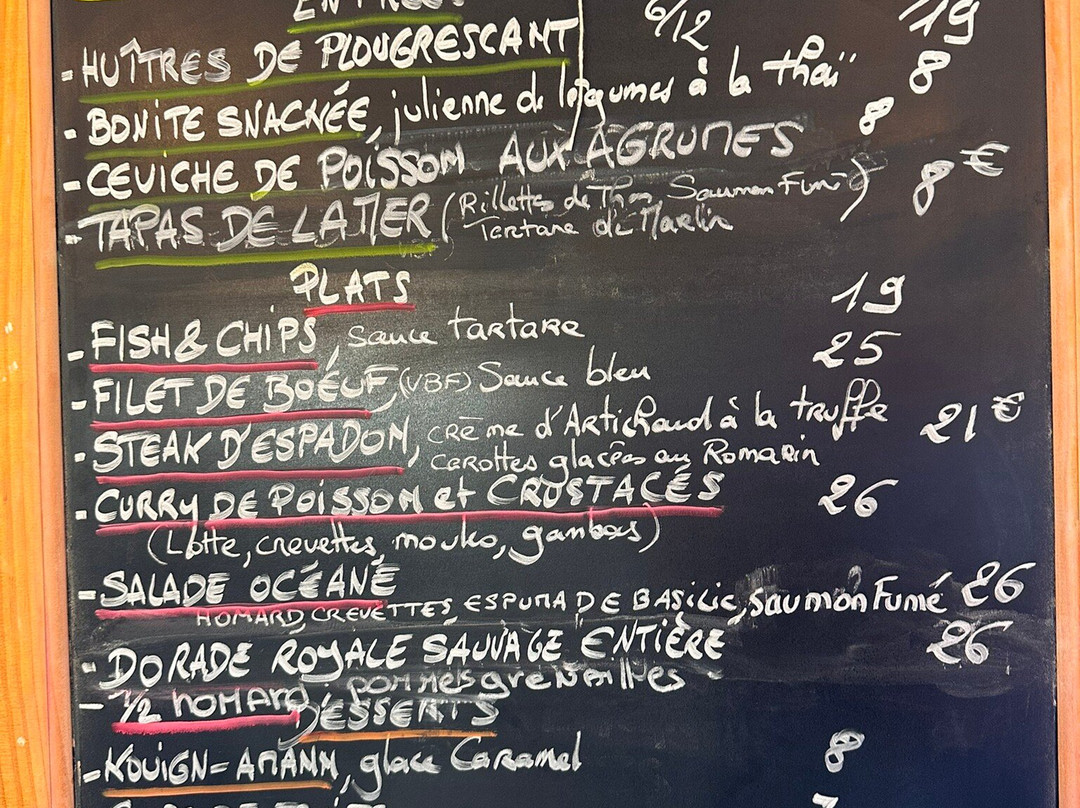 ENTRÉES
- HUÎTRES DE PLOUGRESCANT 6/12 19
- BONITE SNACKÉE, julienne de légumes à la thaï 8
- CEVICHE DE POISSON AUX AGRUMES 8
- TAPAS DE LA MER (Rillettes de Thon Saumon Fumé) 8€
Tartare de Marlin
PLATS
- FISH & CHIPS, sauce tartare 19
- FILET DE BOEUF, (VBF) Sauce bleu 25
- STEAK D'ESPADON, crème d'Artichaud à la truffe 21€
carottes glacées au Romarin
- CURRY DE POISSON et CRUSTACÉS 26
(Lotte, crevettes, moules, gambas)
- SALADE OCÉANE
HOMARD, CREVETTES, ESPUMA DE BASILIC, Saumon Fumé 26
- DORADE ROYALE SAUVAGE ENTIÈRE 26
- 1/2 HOMARD, pommes grenailles
DESSERTS
- KOUIGN-AMANN, glace Caramel 8